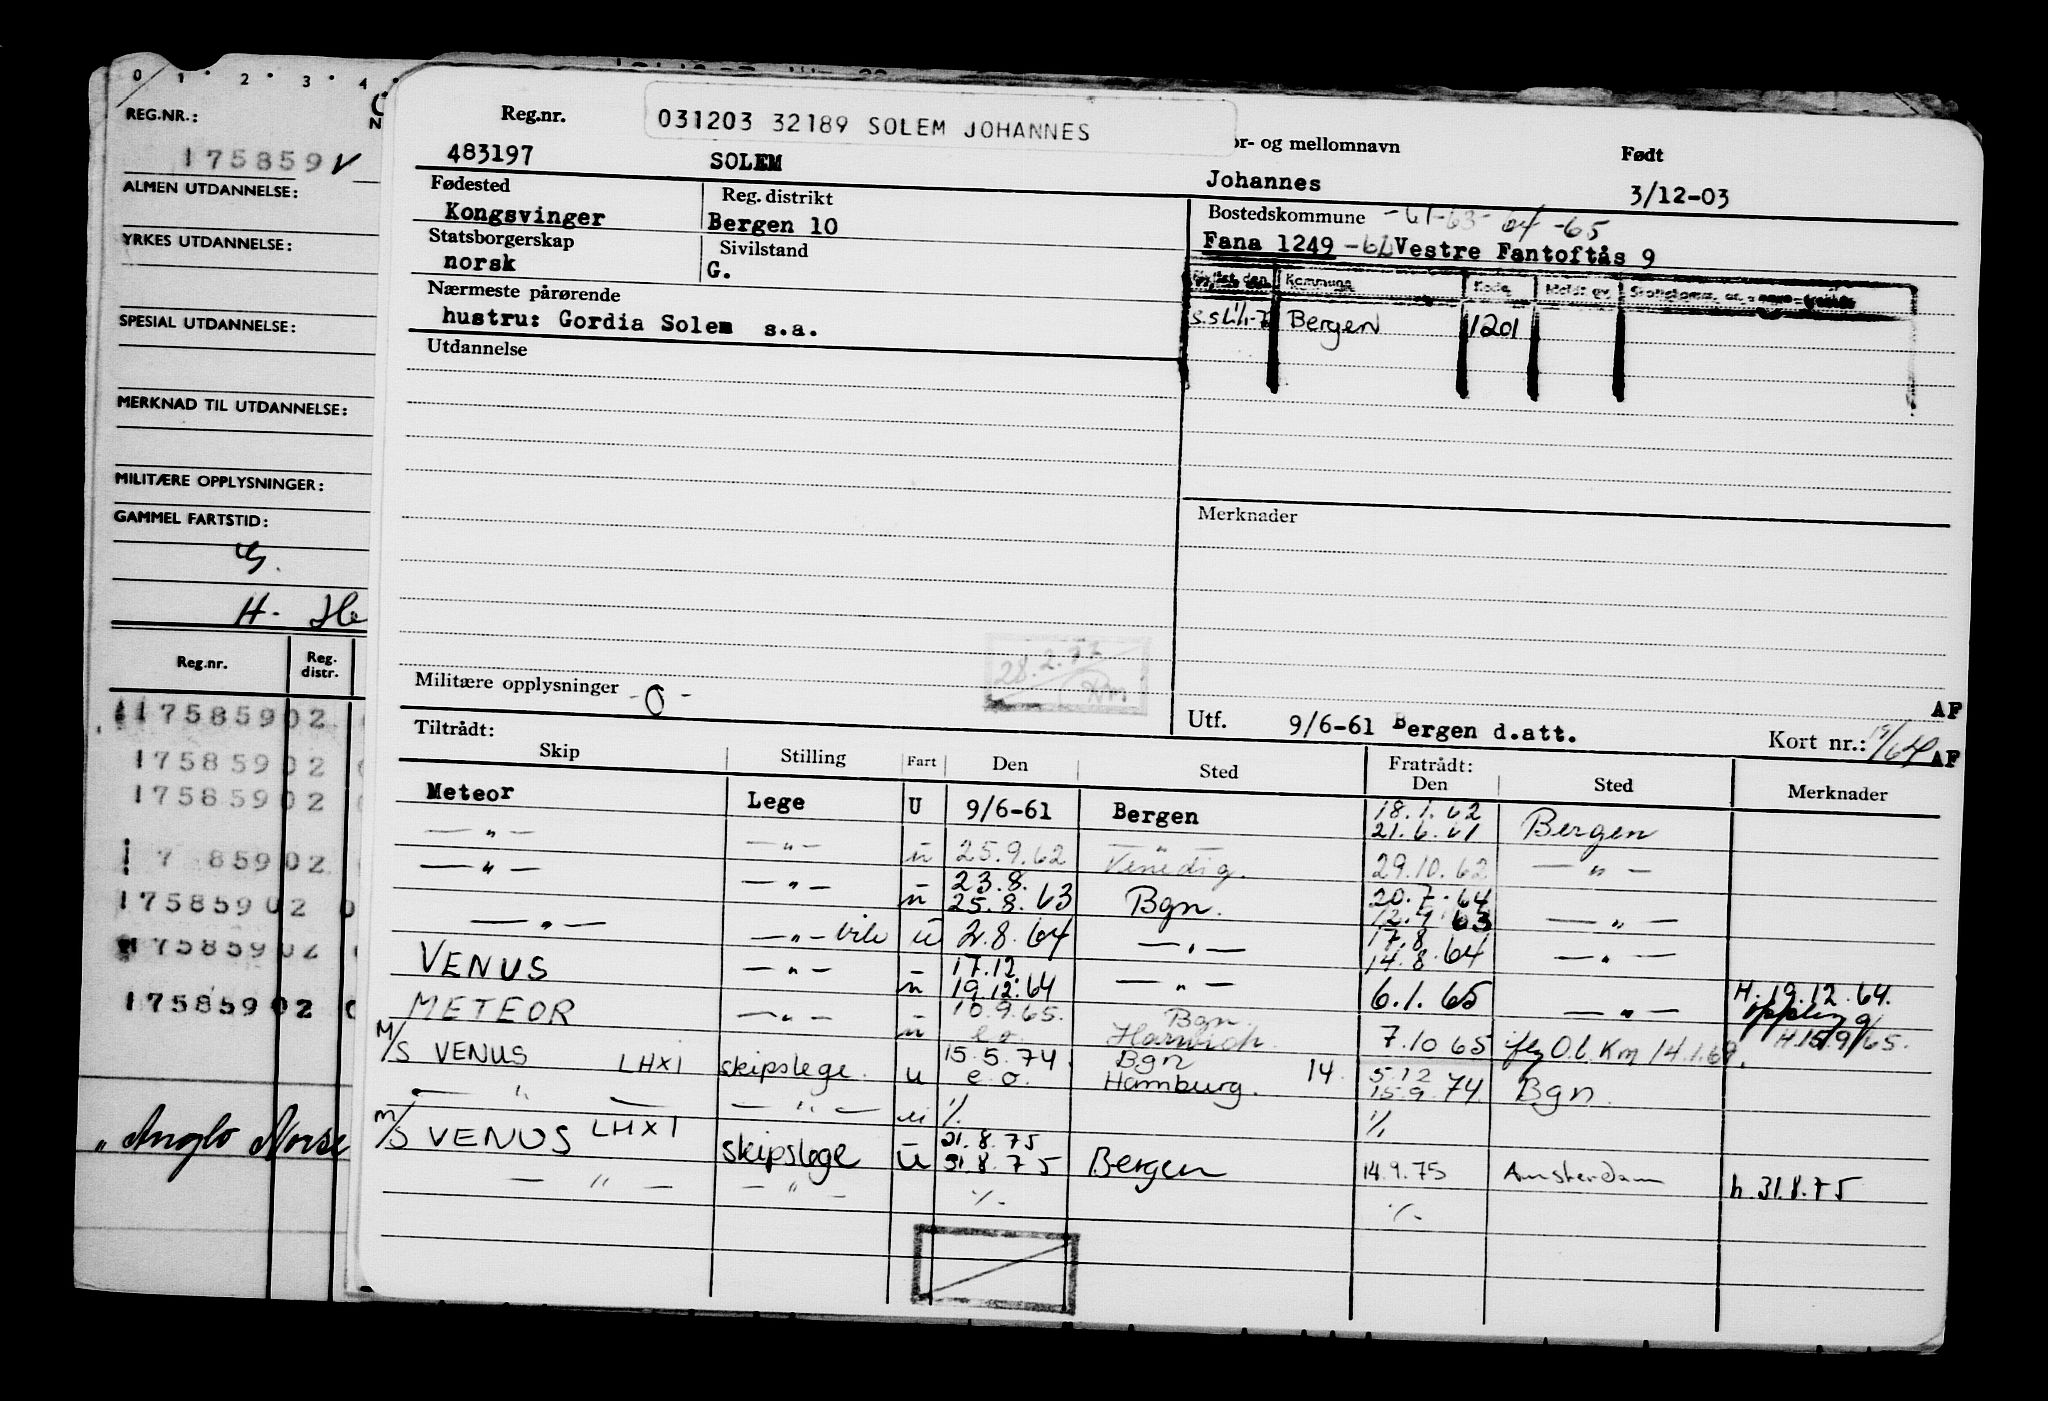 0 1 2 3 4
REG.NR.:
175859 V
ALMEN UTDANNELSE:
YRKES UTDANNELSE:
SPESIAL UTDANNELSE:
MERKNAD TIL UTDANNELSE:
MILITÆRE OPPLYSNINGER:
GAMMEL FARTSTID:
H. He
Reg.nr. Reg. distr.
175859 02
175859 02
175859 02
7 859 02
175859 02 0
75859 02
175859 02 0
" Anglo Norse
Reg.nr. 031203 32189 SOLEM JOHANNES or- og mellomnavn Født
483197 SOLEM Johannes 3/12-03
Fødested Reg. distrikt Bostedskommune -61-63-64-65
Kongsvinger Bergen 10 Fana 1249 -62 Vestre Fantoftås 9
Statsborgerskap Sivilstand
norsk G.
Kommune Kode
Bergen 1201
Nærmeste pårørende
hustru: Gordia Solem s.a.
Utdannelse
Merknader
28.2.77
Militære opplysninger -0-
AF
Utf. 9/6-61 Bergen d.att. Kort nr.: AF
Tiltrådt: Fratrådt:
Skip Stilling Fart Den Sted Den Sted Merknader
Meteor Lege U 9/6-61 Bergen 18.1.62 21.6.61 Bergen
— " — — " — u 25.9.62 Venedig. 29.10.62 — " —
— " — — " — u 23.8. 25.8.63 Bgn. 20.7.64 12.9.63 — " —
— " — — " — u 2.8.64 — " — 17.8 14.8.64 — " —
VENUS — " — u 17.12. 19.12.64 — " — 6.1.65 — " — H. 19.12.64.
METEOR — " — u 10.9.65. e.o. Bgn. Harwich. 7.10 65 14.1.69. H.15/9/65.
M/S VENUS LHXI skipslege. u 15.5.74. e.o. Bgn Hamburg. 14. 5.12 15.9.74. Bgn.
— " — — " — u ٪ ٪
M/S VENUS LHXI skipslege u 21.8.75 31.8.75 Bergen 14.9.75 Amsterdam h 31.8.75
— " — — " — ٪ ٪